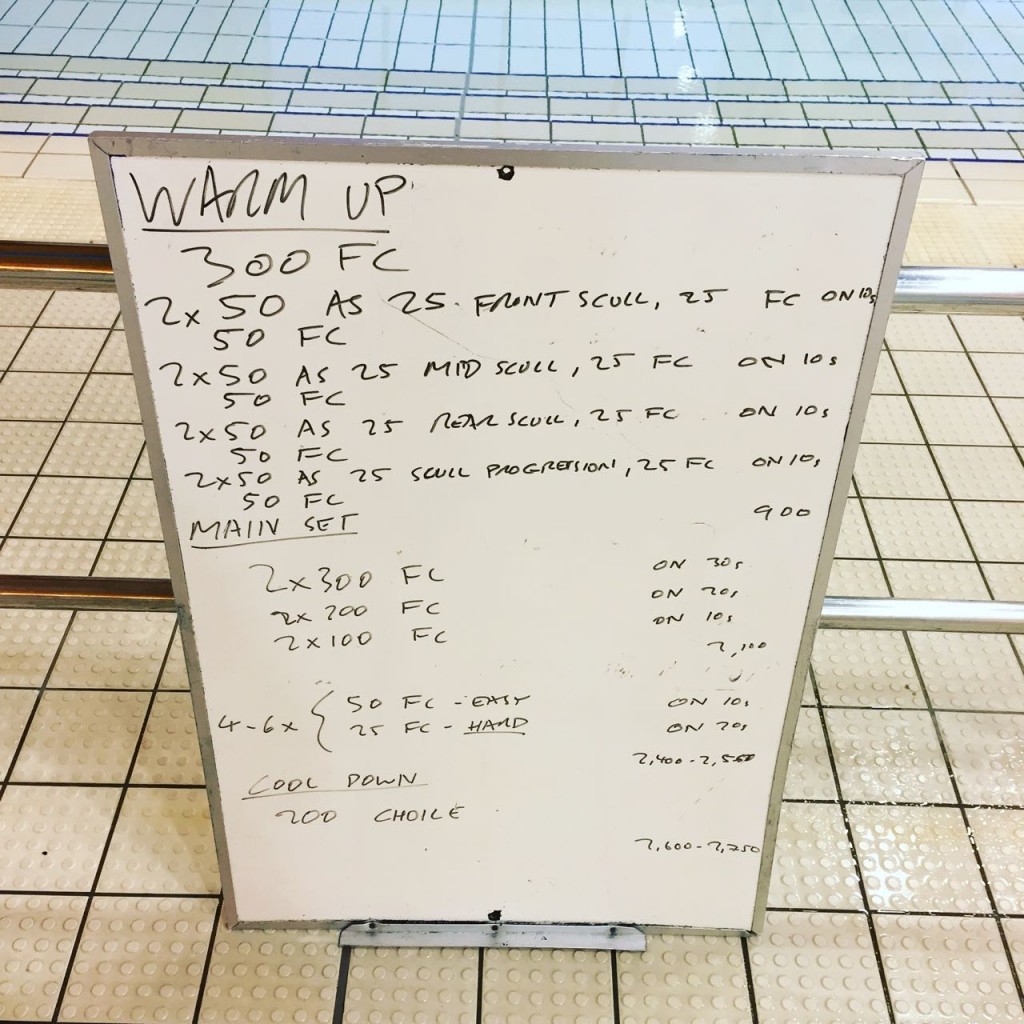 WARM UP
300 FC
2x 50 AS 25 FRONT SCULL, 25 FC ON 10s
50 FC
2x50 AS 25 MID SCULL, 25 FC ON 10s
50 FC
2x50 AS 25 REAR SCULL, 25 FC ON 10s
50 FC
2x50 AS 25 SCULL PROGRESSION, 25 FC ON 10s
50 FC
900
MAIN SET
2x300 FC ON 30s
2x 200 FC ON 20s
2x100 FC ON 10s
2,100
4-6x { 50 FC - EASY ON 10s
25 FC - HARD ON 20s
2,400-2,550
COOL DOWN
200 CHOICE
2,600-2,750